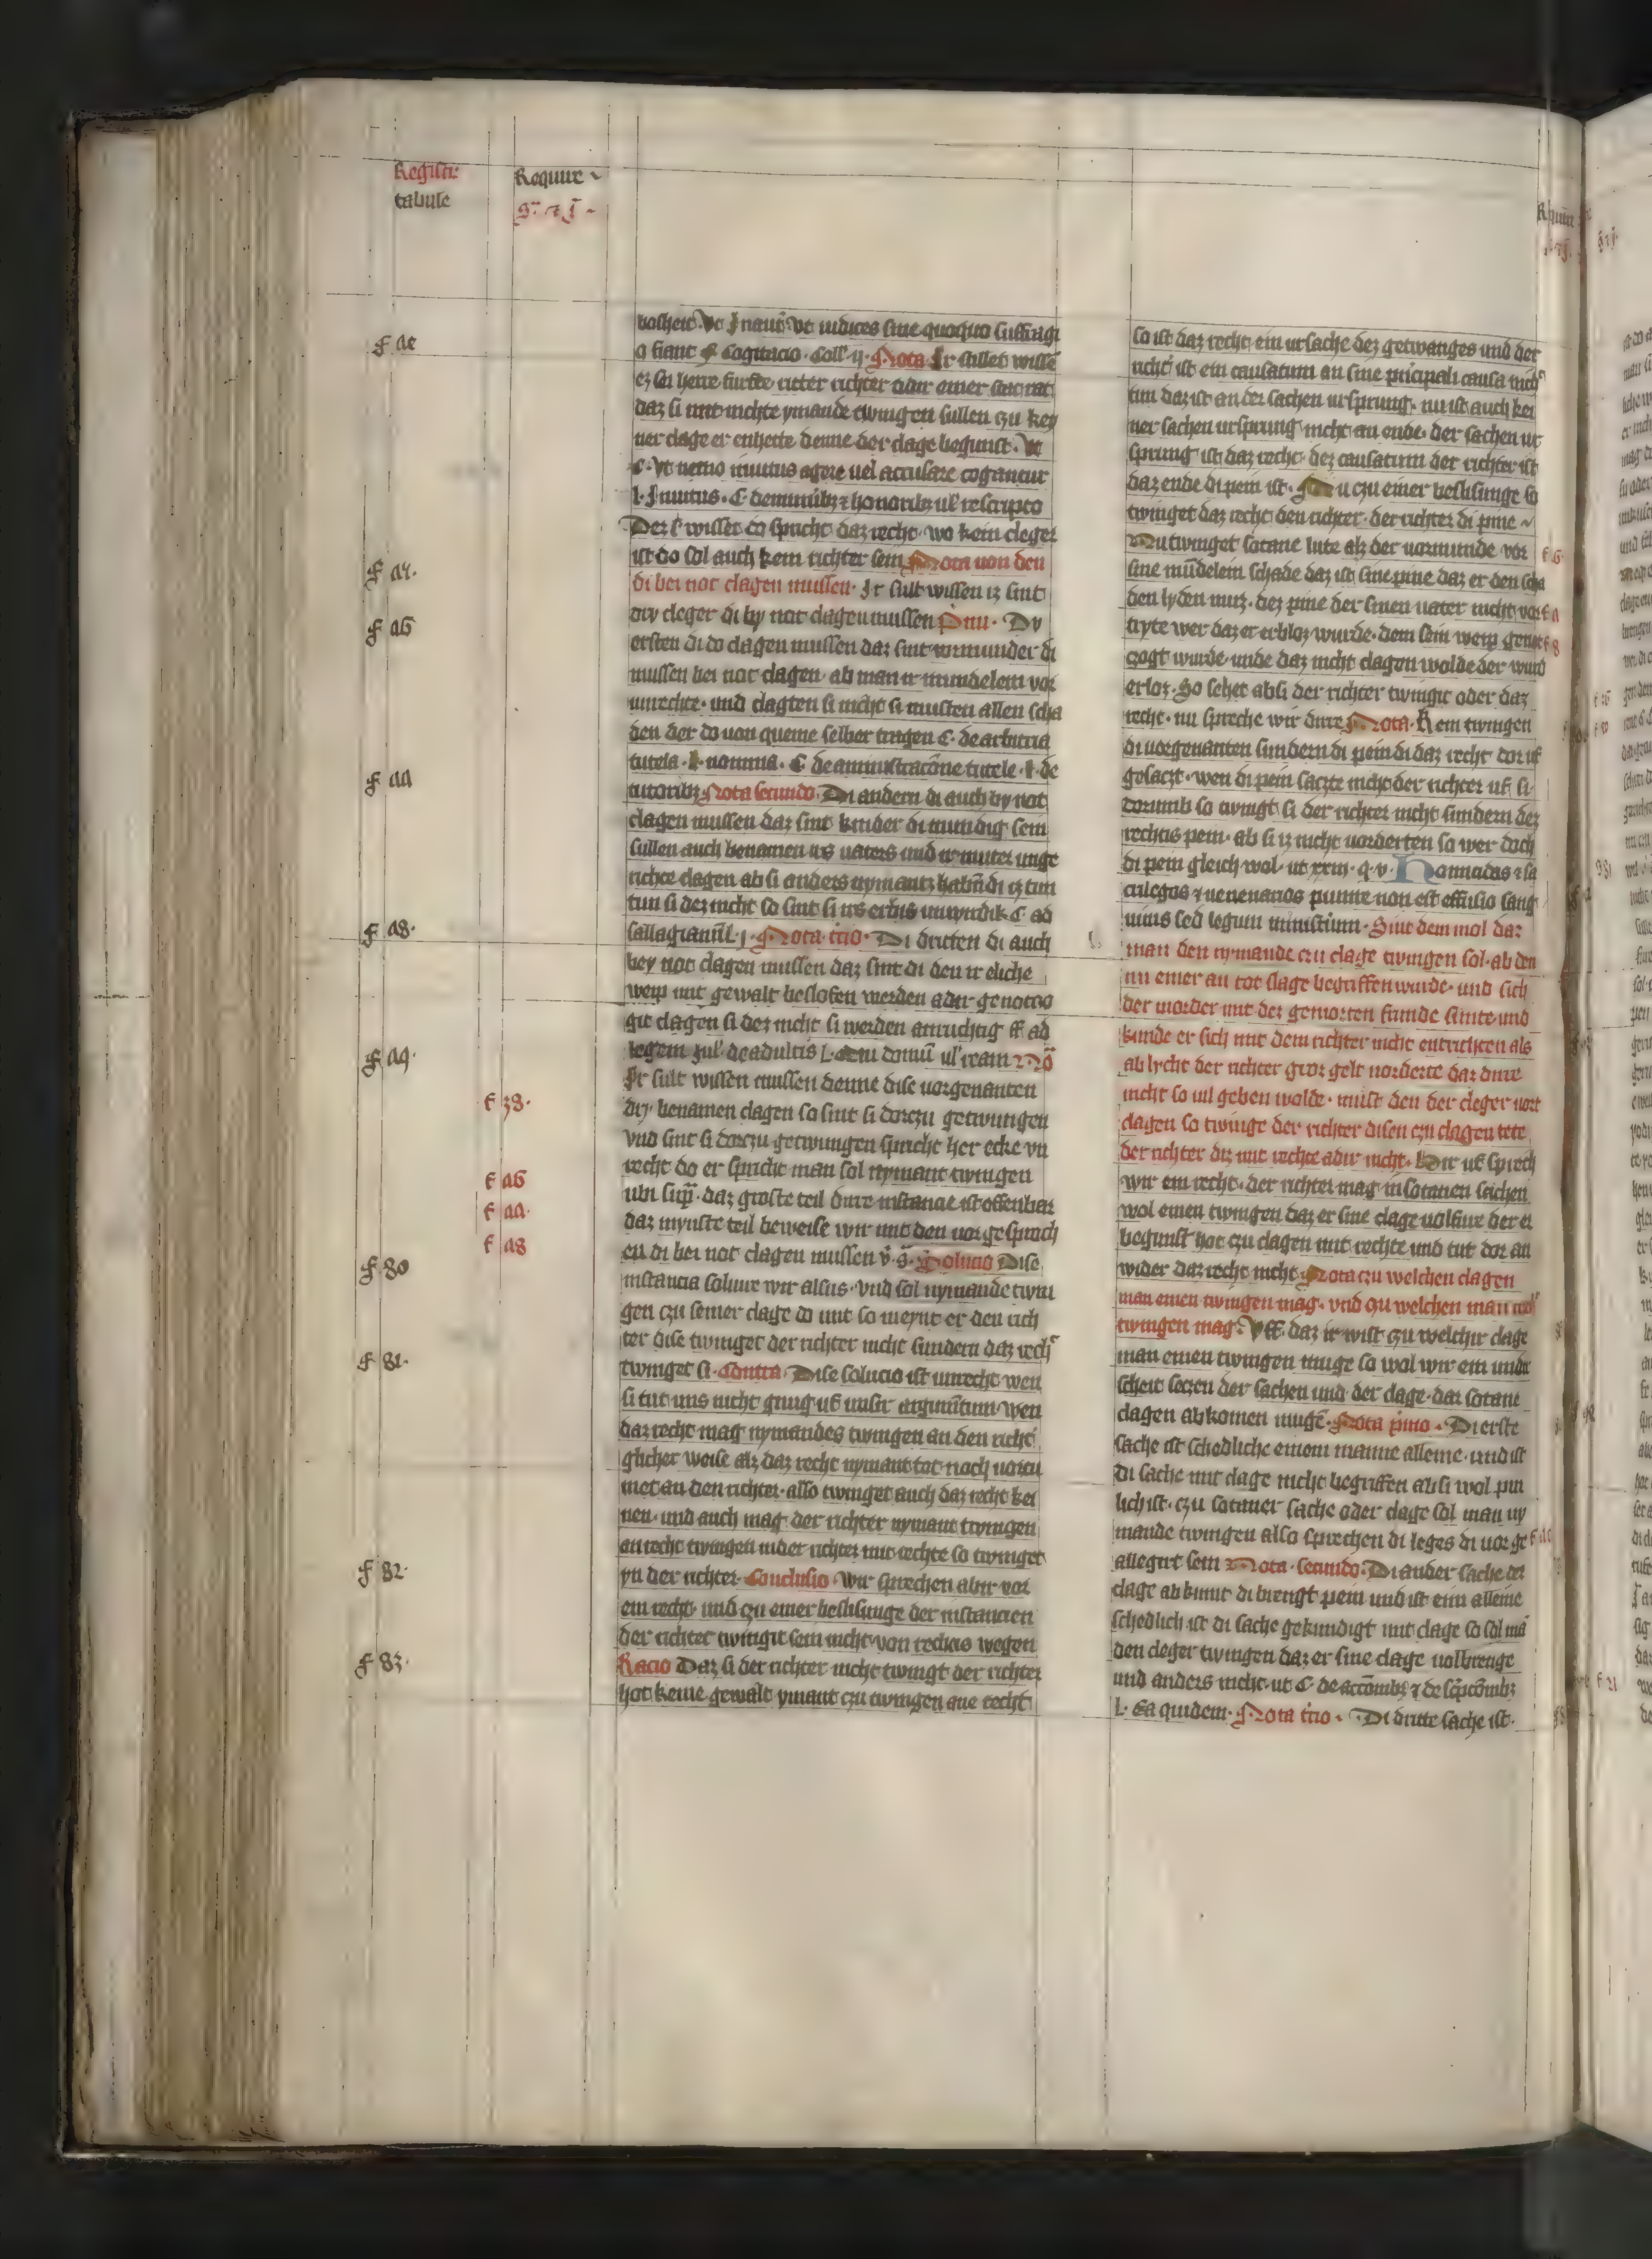 Registr
tabule
Require
f ae
f ay.
f a6
f aa
f a8.
f a9
f 38.
f a6
f aa.
f a8
f 80
f 81.
f 82.
f 83.
bosheit. Vt J naut vt iudices sine quoquo suffragi
o fiant cogitacio. Coll. ij. Nota Ir sullet wissē
ez sei herre furste ritter richter adir einer stat rat
daz si mit nichte ymande twingen sullen czu key
ner clage er enhette denne der clage begunst. Vt
C. Vt nemo inuitus agere uel accusare cogantur
l. Inuitus. C. de muniibz & honoribz ul' rescripto
Dez wisset do spricht daz recht. wo kein cleger
ist do sol auch kein richter sein Nota von den
di bei not clagen mussen. Ir sult wissen iz sint
dry cleger di by not clagen mussen Dy
ersten di do clagen mussen daz sint vormunder di
mussen bei not clagen. ab man ir mundelein vor
unrechte. und clagten si nicht si musten allen scha
den der do von queme selber tragen C. de arbitria
tutela. l. nomina. C de amministracōne tutele. l. de
tutoribz. Nota secundo. Di andern di auch by not
clagen mussen daz sint kinder di mundig sein
sullen auch benamen irs vaters und ir muter unge
richte clagen ab si anders nymantz habn di iz tun
tun si dez nicht so sint si irs erbis unwirdik C. ad
. Nota tercio. Di dritten di auch
bey not clagen mussen daz sint di den ir eliche
weip mit gewalt beslofen werden adir genotczo
git clagen si dez nicht si werden anruchtig ff ad
legem Jul' de adultis l.
Ir sult wissen mussen denne dise vorgenanten
dry. benamen clagen so sint si dorczu getwungen
vnd sint si dorczu getwungen spricht her ecke vn
recht do er spricht man sol nymant twingen
ubi sup. daz groste teil dirre instancie ist offenbar
daz mynste teil beweise wir mit den vor gesproch
en di bei not clagen mussen v. s. Solucio Dise
instancia solvire wir alsus. vnd sol nymande twin
gen czu seiner clage do mit so meynt er den rich
ter dise twinget der richter nicht sundern daz rech
twinget si. Contra. Dise solucio ist unrecht wen
si tut uns nicht gnug uf unser argumētum wen
daz recht mag nymandes twingen an den richt
glicher weise alz daz recht nymant tot noch vorcu
met an den richter. also twinget auch daz recht kei
nen. und auch mag der richter nymant twingen
an recht twingen in der richter mit rechte so twinget
yn der richter. Conclusio. Wir sprechen abir vor
ein recht. und czu einer beslisunge der instancien
der richter twingit sein nicht von rechtis wegen
Racio Daz si der richter nicht twingt der richter
hot keine gewalt ymant czu twingen ane recht
so ist daz recht ein ursache dez getwanges und der
richt ist ein causatum an sine principali causa nich
tun daz ist an der sachen ursprung. nu ist auch kei
ner sachen ursprung nicht an ende. der sachen ur
sprung ist daz recht. dez causatum der richter ist
daz ende di pein ist. Nu czu einer beslisunge so
twinget daz recht den richter. der richter di pine
Nu twinget sotane lute alz der vormunde vor
sine mūdelein schade daz ist sine pine daz er den scha
den lyden muz. dez pine der sinen vater nicht vor
tryte wer daz er erbloz wurde. dem sein weip genot
czogt wurde unde daz nicht clagen wolde der wurd
erloz. So sehet ab si der richter twingit oder daz
recht. nu spreche wir dirre Nota. Kein twingen
di vorgenanten sundern di pein di daz recht dor uf
gesaczt. wen di pein saczte nicht der richter uf si.
dorumb so twingt si der richter nicht sundern dez
rechtis pein. ab si iz nicht vorderten so wer doch
di pein gleich wol. ut xxiij. q. v. Homicidas & sa
crilegos & venenarios punire non est effusio sang
uinis sed legum ministrium. Sint dem mol daz
man den nymande czu clage twingen sol. ab den
nu einer an tot slage begriffen wurde. und sich
der morder mit dez gemorten frunde sunte und
kunde er sich mit dem richter nicht entrichten als
ab lycht der richter groz gelt vorderte daz dirre
nicht so vil geben wolde. must den der cleger vort
clagen so twinge der richter disen czu clagen tete
der richter diz mit rechte adir nicht. Hir uf sprech
wir ein recht. der richter mag in sotanen sachen
wol einen twingen daz er sine clage volfure der er
begunst hot czu clagen mit rechte und tut dor an
wider daz recht nicht. Nota czu welchen clagen
man einen twingen mag. vnd czu welchen man nich
twingen mag. Vff. daz ir wist czu welchir clage
man einen twingen muge so wol wir ein undir
scheit seczen der sachen und der clage. daz sotane
clagen abkomen mugē. Nota primo. Di erste
sache ist schedliche einem manne alleine. und ist
di sache mit clage nicht begriffen ab si wol pin
lich ist. czu sotaner sache oder clage sol man ny
mande twingen also sprechen di leges di vor ge
allegirt sein Nota. secundo. Di ander sache der
clage ab kumt di brengt pein und ist eim alleine
schedlich ist di sache gekundigt mit clage so sol mā
den cleger twingen daz er sine clage volbrenge
und anders nicht. ut C. de
l. Ea quidem. Nota tercio. Di dritte sache ist.